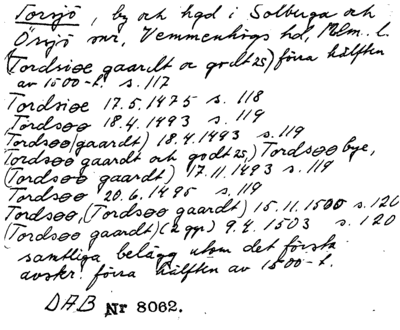 Torsjö, by och hgd i Solberga och
Örsjö snr, Vemmenhögs hd, Mlm. l.
(Tordsiøe gaardt oc godt 2s) förra hälften
av 1500-t. s. 117
Tordsiøe 17.5.1475 s. 118
Tordsøø 18.4.1493 s. 119
Tordsøø (gaardt) 18.4.1493 s. 119
Tordsøø gaardt och godt 2s,) Tordsøø bye,
(Tordsøø gaardt) 17.11.1493 s. 119
Tordsøø 20.6.1495 s. 119
Tordsøø, (Tordsøø gaardt) 15.11.1500 s. 120
(Tordsøø gaardt) (2 ggr) 9.4.1503 s. 120
samtliga belägg utom det första
avskr. förra hälften av 1500-t.
DAB Nr 8062.